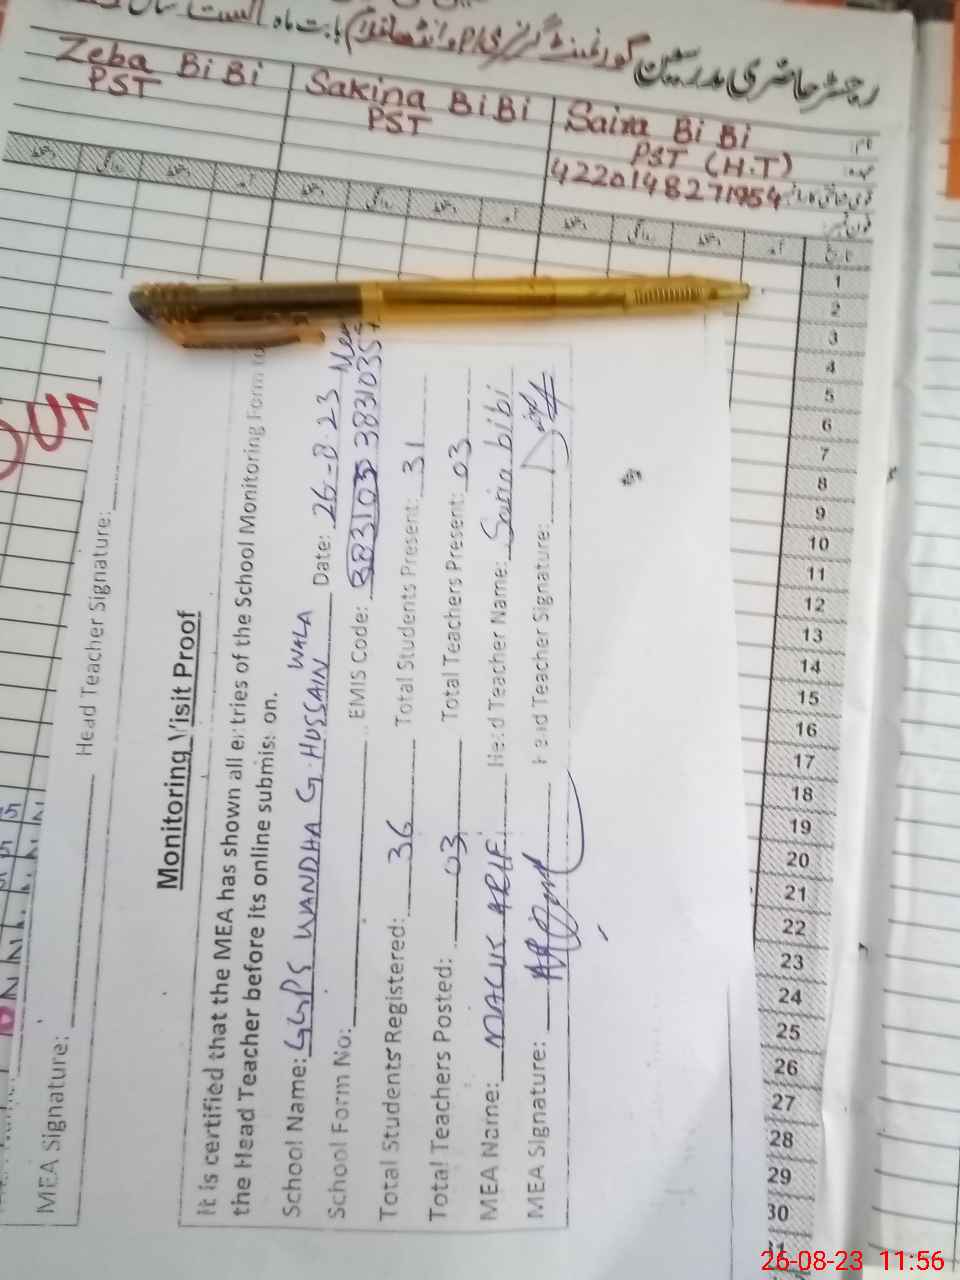 رجسٹر حاضری مدرسین گورنمنٹ گرلز
بابت ماہ اگست
Zeba BiBi
PST
Sakina BiBi
PST
Saira Bi Bi
PST (H.T)
4220148271954
1
2
3
4
5
6
7
8
9
10
11
12
13
14
15
16
17
18
19
20
21
22
23
24
25
26
27
28
29
30
MEA Signature: Head Teacher Signature:
Monitoring Visit Proof
It is certified that the MEA has shown all entries of the School Monitoring Form to
the Head Teacher before its online submission.
School Name: GGPS WANDHA G. HUSSAIN WALA Date: 26-8-23
School Form No: EMIS Code: 383105 3831035
Total Students Registered: 36 Total Students Present: 31
Total Teachers Posted: 03 Total Teachers Present: 03
MEA Name: MALIK ARIF Head Teacher Name: Saira bibi
MEA Signature: Head Teacher Signature:
26-08-23 11:56